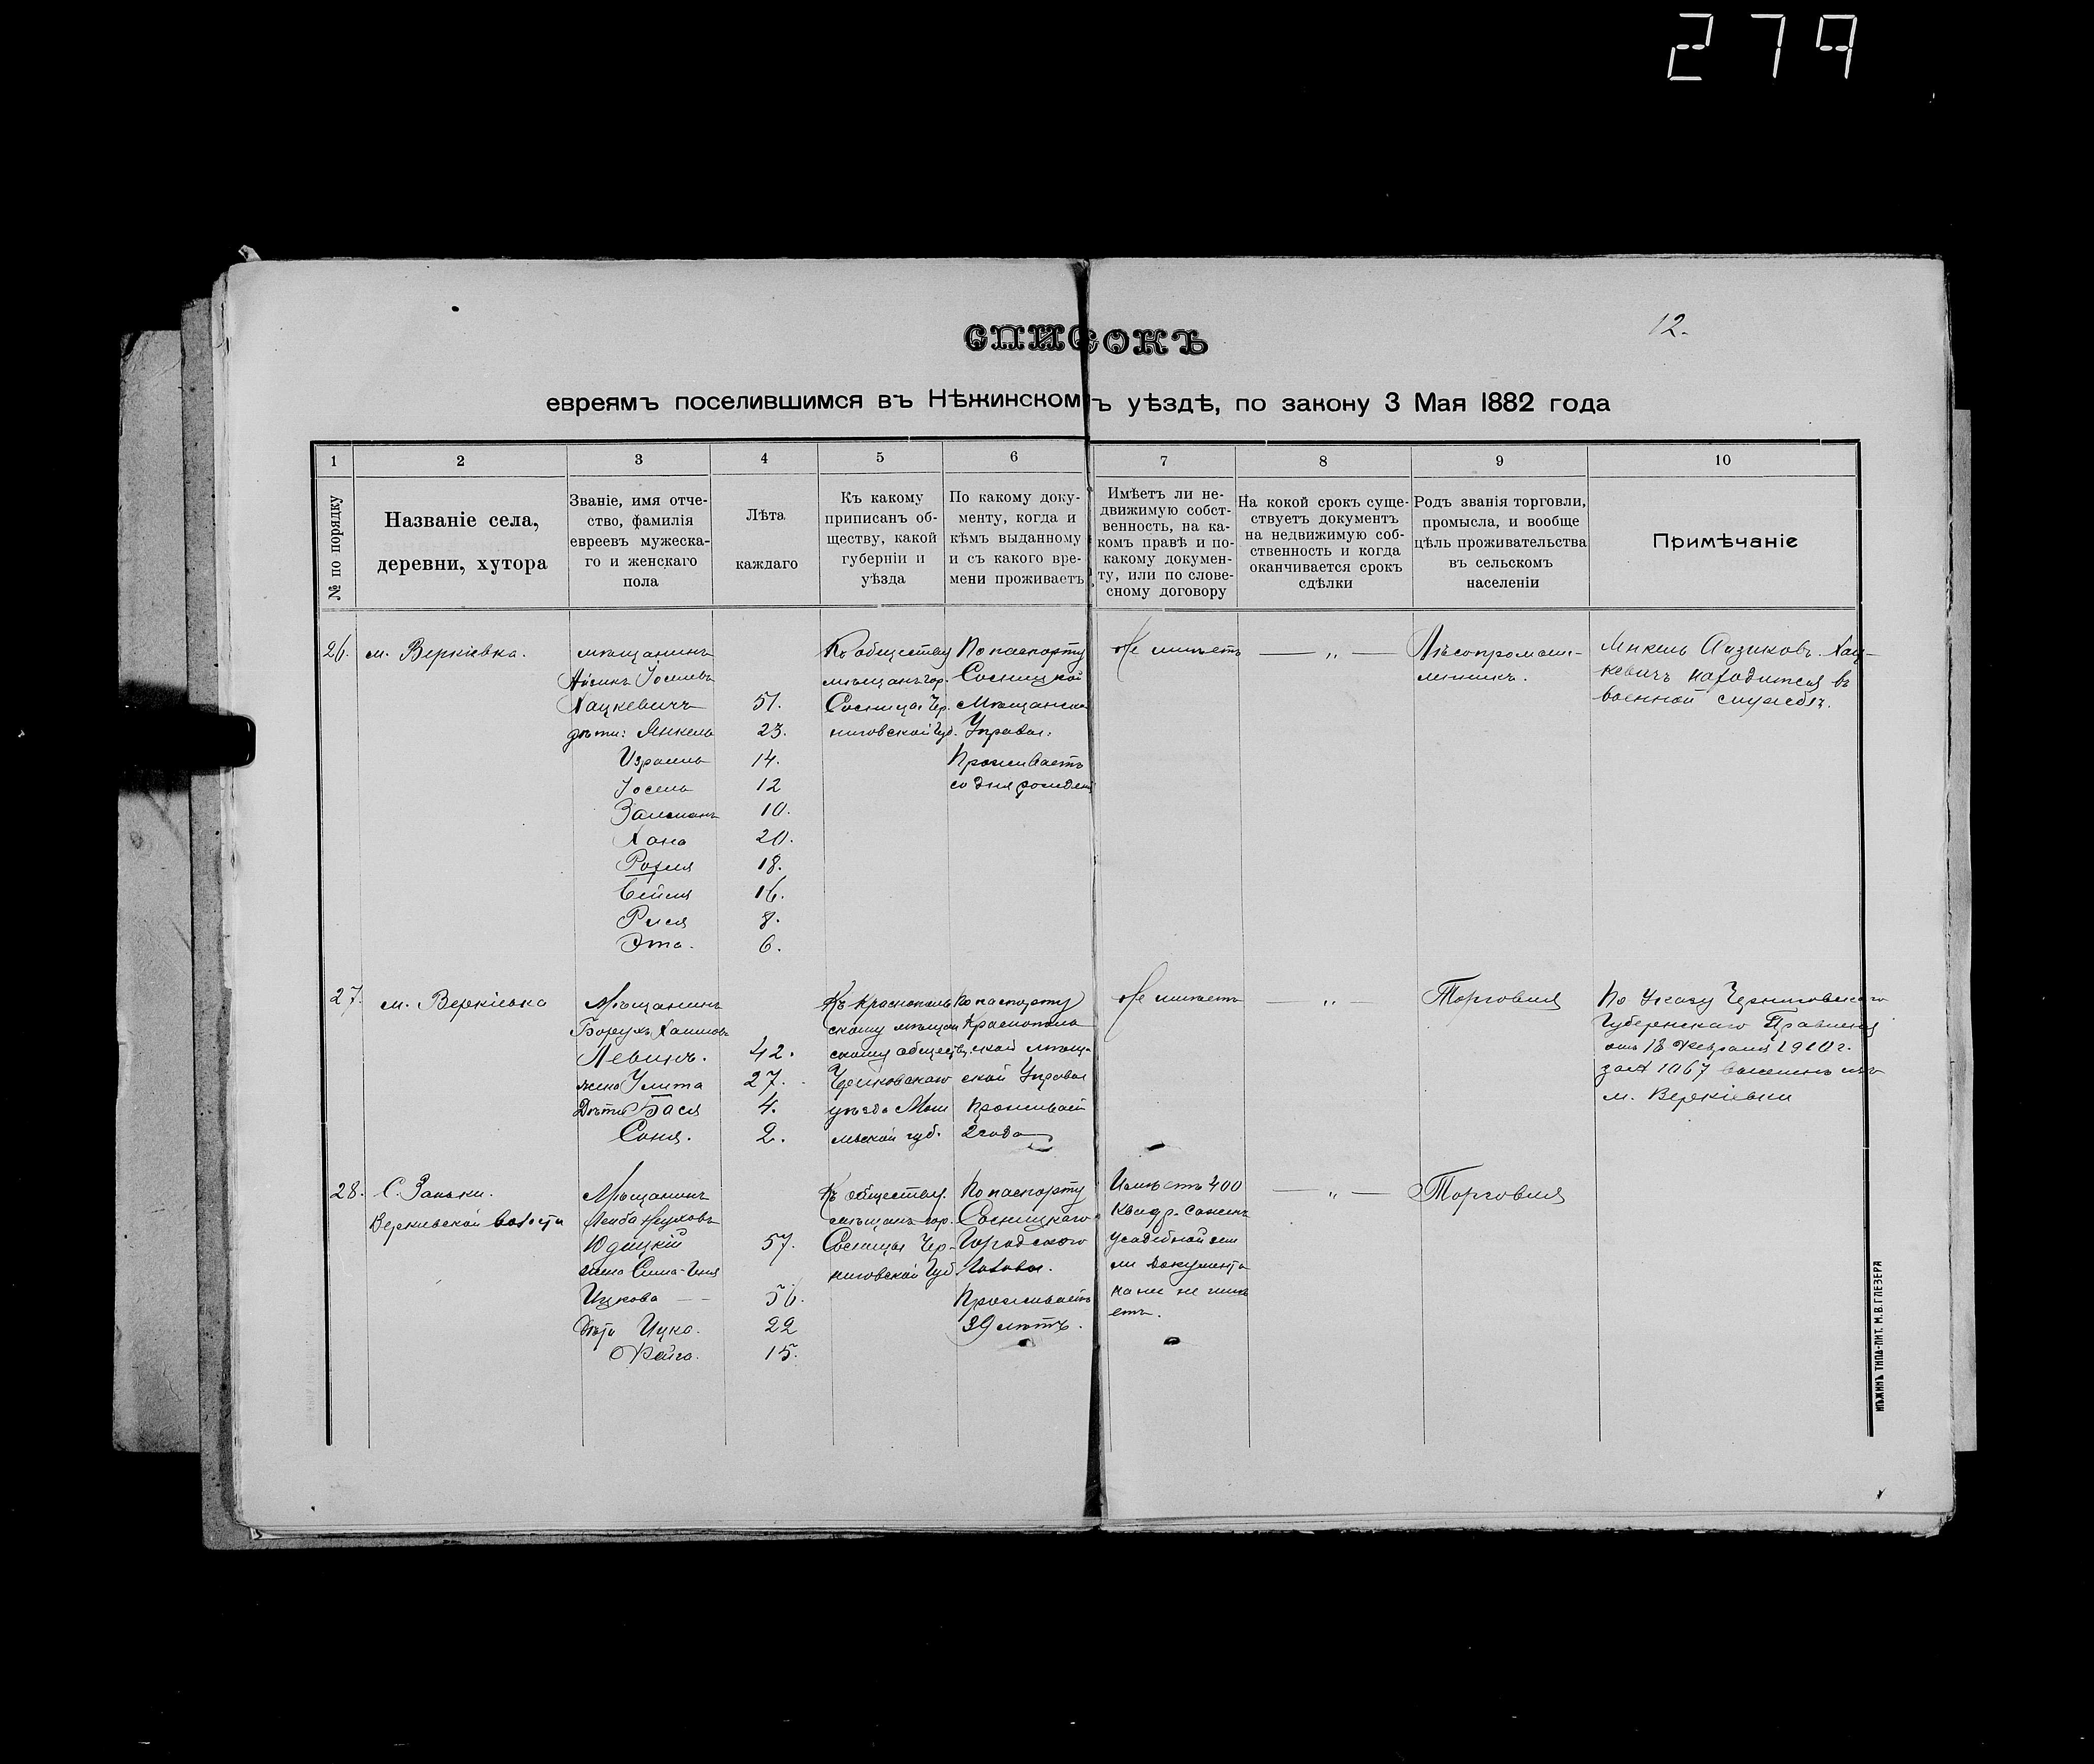 279
12.
СПИСОКЪ
евреямъ поселившимся въ Нѣжинскомъ уѣздѣ, по закону 3 Мая 1882 года
1
2
3
4
5
6
7
8
9
10
№ по порядку
Названіе села,
деревни, хутора
Званіе, имя отче-
ство, фамилія
евреевъ мужеска-
го и женскаго
пола
Лѣта
каждаго
Къ какому
приписанъ об-
ществу, какой
губерніи и
уѣзда
По какому доку-
менту, когда и
кѣмъ выданному
и съ какого вре-
мени проживаетъ
Имѣетъ ли не-
движимую собст-
венность, на ка-
комъ правѣ и по-
какому докумен-
ту, или по слове-
сному договору
На кокой срокъ суще-
ствуетъ документъ
на недвижимую соб-
ственность и когда
оканчивается срокъ
сдѣлки
Родъ званія торговли,
промысла, и вообще
цѣль проживательства
въ сельскомъ
населеніи
Примѣчаніе
26.
м. Веркіевка.
мѣщанинъ
Айзикъ Іосилевъ
Хацкевичъ 51.
дѣти: Янкель 23.
Израиль 14.
Іосель 12
Залманъ 10.
Хана 20.
Рохля 18.
16.
Рися 8.
Эта. 6.
Къ обществу
мѣщанъ гор.
Сосница Чер-
ниговской губ.
По паспорту
Сосницкой
Мѣщанской
Управы.
Проживаетъ
со дня рожденія
Не имѣетъ
— „ —
Лѣсопромыш-
ленникъ.
Айзиковъ Хац-
кевичъ находится въ
военной службѣ.
27.
м. Веркіевка
Мѣщанинъ
Борухъ Хаимовъ
Левинъ. 42.
жена Улита 27.
Дѣти Бася 4.
Соня. 2.
Къ Краснополь-
скому мѣщан
скому обществу,
Чериковскаго
уѣзда Моги
левской губ.
По паспорту
Краснополь
ской мѣщан-
ской Управы
Проживает
2 года
Не имѣетъ
— „ —
Торговля
По Указу Черниговскаго
Губернскаго Правленія
отъ 18 Февраля 1910 г.
за № 1067 выселенъ изъ
м. Веркіевки
28.
С. Заньки.
Веркиевской волости
Мѣщанинъ
Лейба Неуховъ
Юдицкій 57.
жена
Ицкова — 56.
дѣти Ицко. 22
Фейга. 15.
Къ обществу
мѣщанъ гор.
Сосницы Чер-
ниговской Губ
По паспорту
Сосницкого
Городского
Головы.
Проживаетъ
39 лѣтъ.
Имѣетъ 400
квадр. сажень
усадебной зем
ли документа
на ни не имѣ
етъ.
— „ —
Торговля
НѢЖИНЪ ТИПО-ЛИТ. М.В.ГЛЕЗЕРА